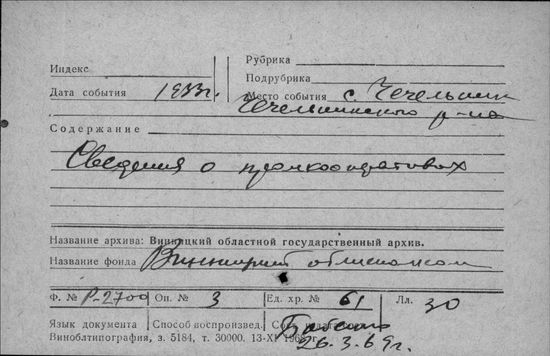 Рубрика
Индекс
Подрубрика
Дата события 1933г. Место события с. Чечельник
Чечельницкого р-на
Содержание
Сведения о промкооперативах
Название архива: Винницкий областной государственный архив.
Название фонда Винницкий облисполком
Ф. № Р-2700 Оп. № 3 Ед. хр. № 61 Лл. 30
Язык документа Способ воспроизвед.
Виноблтипография, з. 5184, т. 30000. 13-XI
26.3.69г.